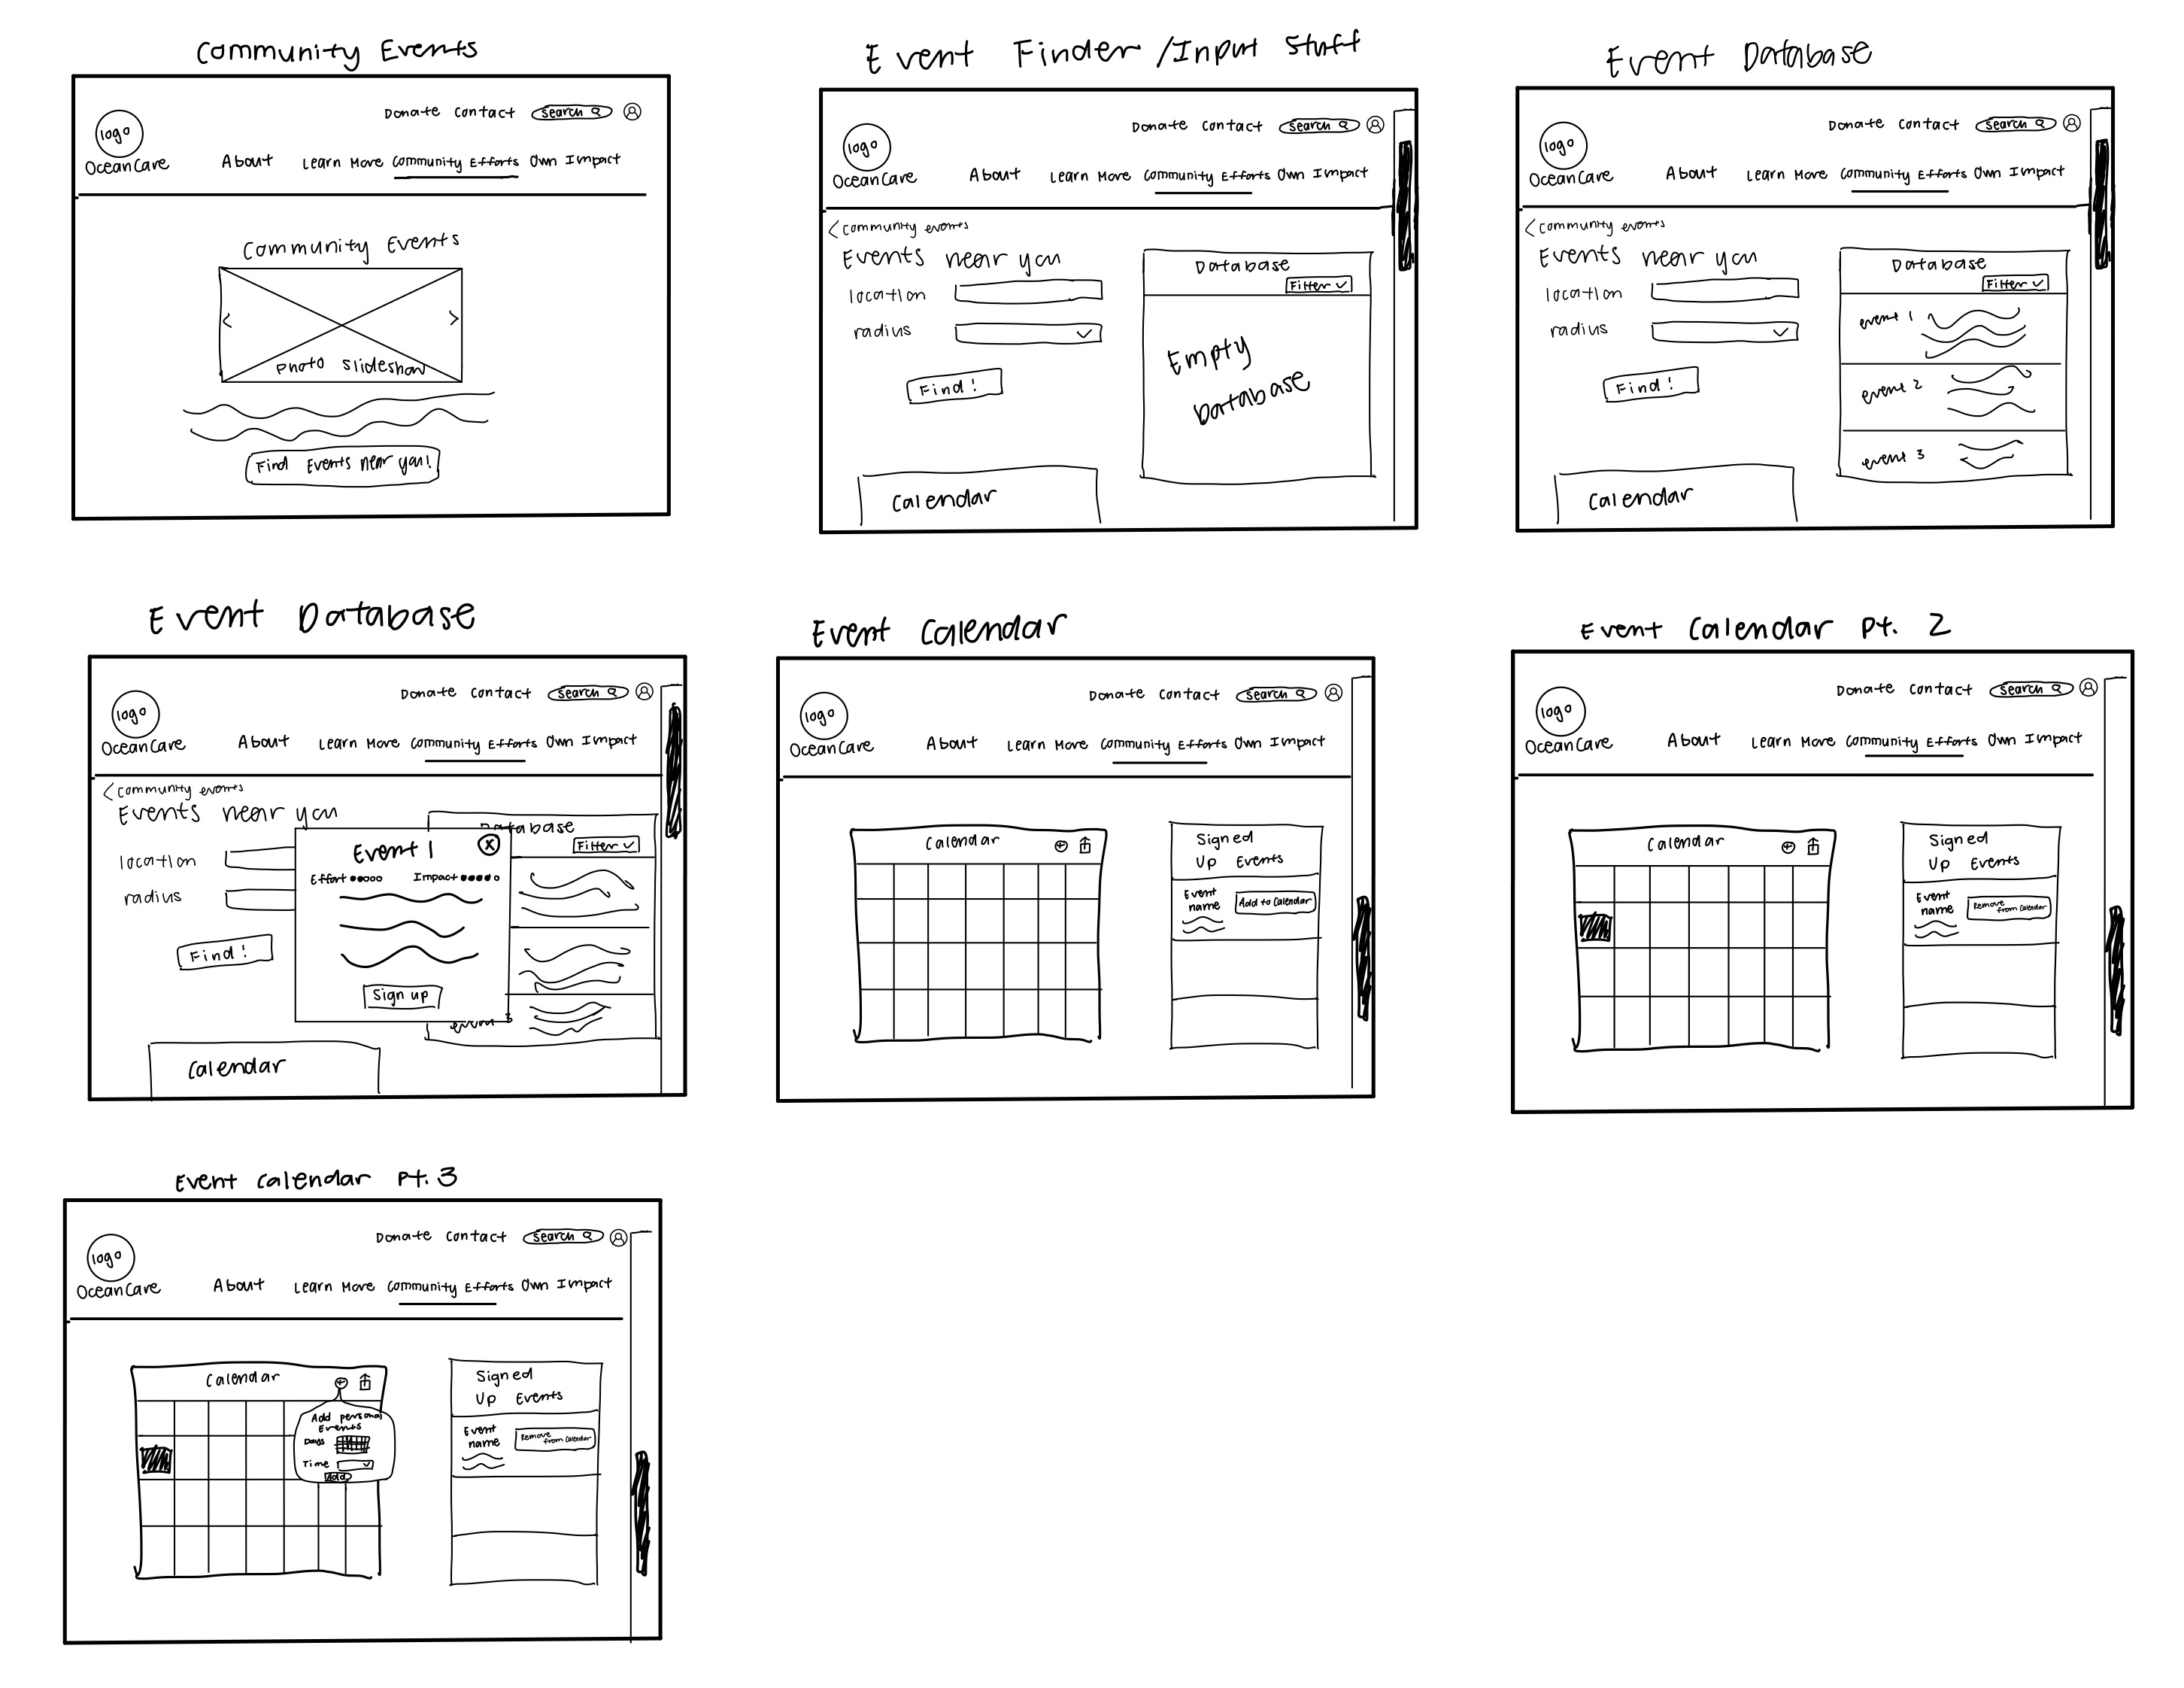 Community Events
Donate Contact Search
logo
OceanCare
About Learn More Community Efforts Own Impact
Community Events
<
>
Photo Slideshow
Find Events near you!
Event Finder/Input Stuff
Donate Contact Search
logo
OceanCare
About Learn More Community Efforts Own Impact
< Community events
Events near you
location
radius
Find!
Database
Filter
Empty
Database
Calendar
Event Database
Donate Contact Search
logo
OceanCare
About Learn More Community Efforts Own Impact
< Community events
Events near you
location
radius
Find!
Database
Filter
event 1
event 2
event 3
Calendar
Event Database
Donate Contact Search
logo
OceanCare
About Learn More Community Efforts Own Impact
< Community events
Events near you
location
radius
Find!
Database
Filter
Event 1
X
Effort Impact
Sign up
event 3
Calendar
Event Calendar
Donate Contact Search
logo
OceanCare
About Learn More Community Efforts Own Impact
Calendar
Signed
Up Events
Event
name
Add to Calendar
Event Calendar Pt. 2
Donate Contact Search
logo
OceanCare
About Learn More Community Efforts Own Impact
Calendar
Signed
Up Events
Event
name
Remove
from Calendar
Event Calendar Pt. 3
Donate Contact Search
logo
OceanCare
About Learn More Community Efforts Own Impact
Calendar
Add personal
Events
Days
Time
Add
Signed
Up Events
Event
name
Remove
from Calendar